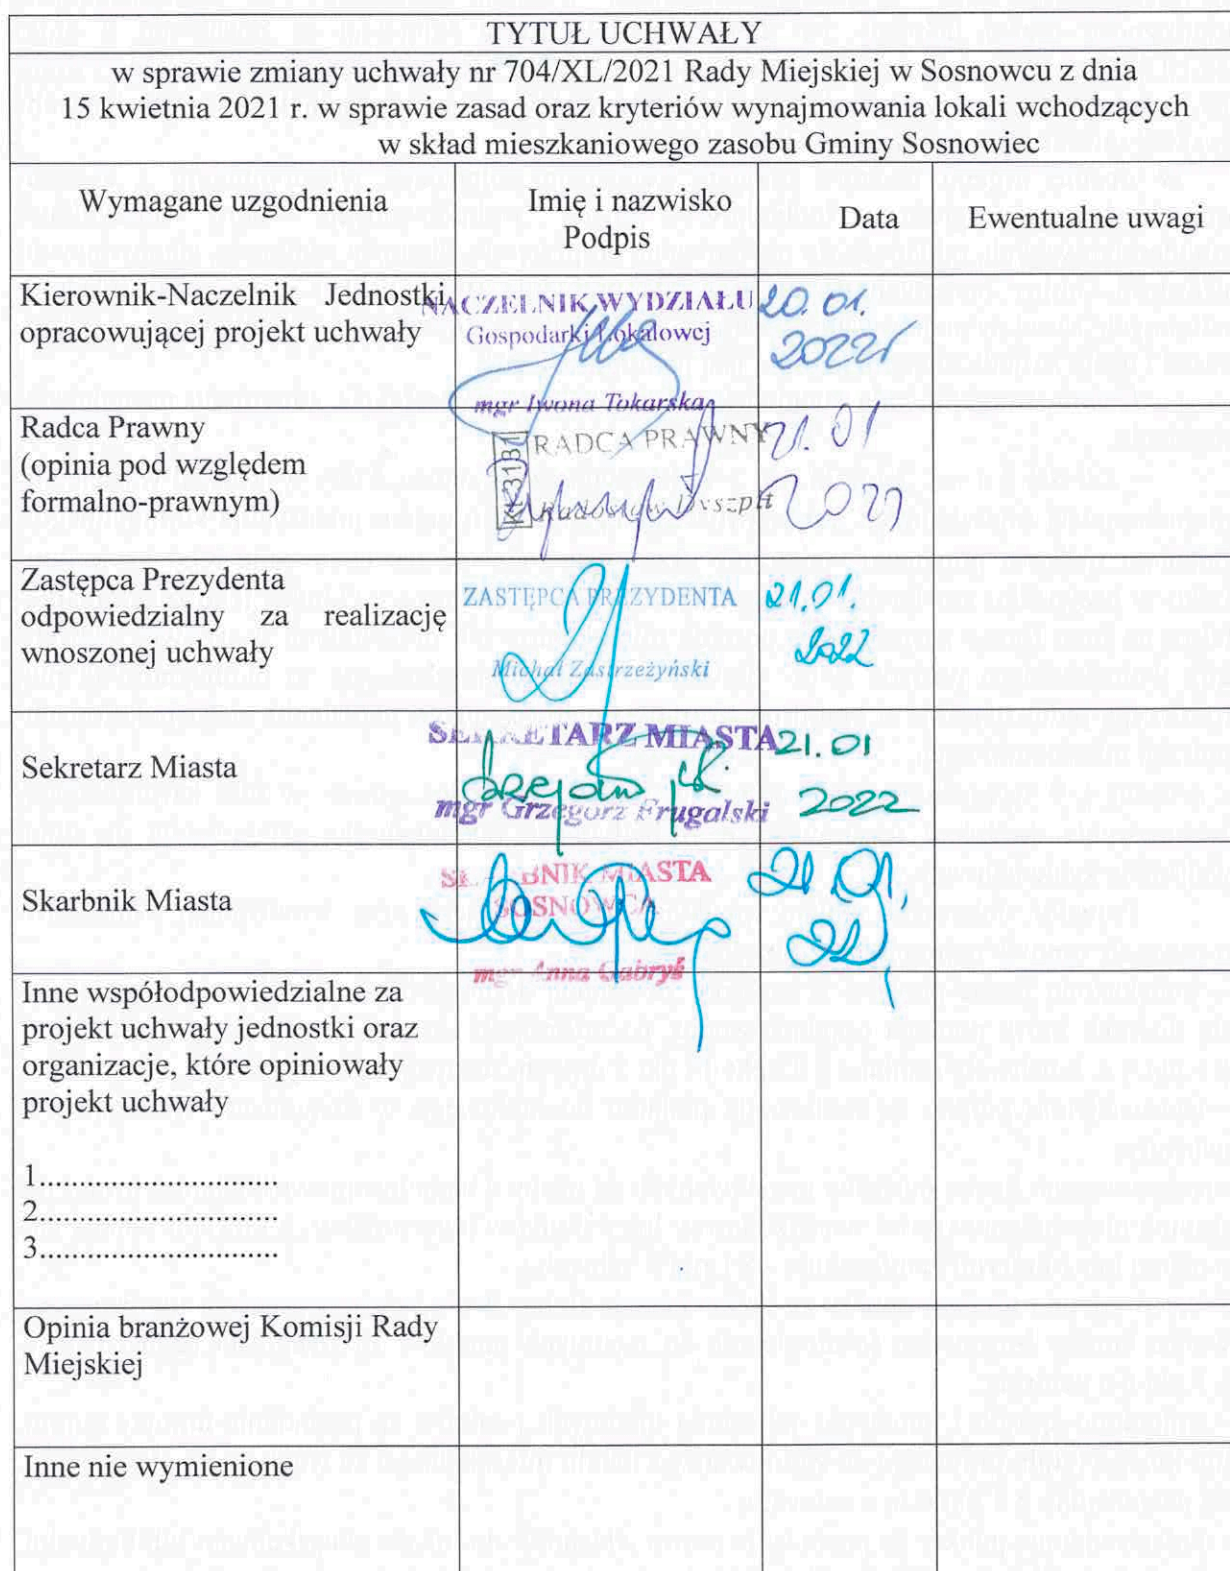 TYTUŁ UCHWAŁY
w sprawie zmiany uchwały nr 704/XL/2021 Rady Miejskiej w Sosnowcu z dnia
15 kwietnia 2021 r. w sprawie zasad oraz kryteriów wynajmowania lokali wchodzących
w skład mieszkaniowego zasobu Gminy Sosnowiec
Wymagane uzgodnienia
Imię i nazwisko
Podpis
Data
Ewentualne uwagi
Kierownik-Naczelnik Jednostki
opracowującej projekt uchwały
NACZELNIK WYDZIAŁU
Gospodarki Lokalowej
mgr Iwona Tokarska
20.01.
2022r
Radca Prawny
(opinia pod względem
formalno-prawnym)
RADCA PRAWNY
21.01
2022
Zastępca Prezydenta
odpowiedzialny za realizację
wnoszonej uchwały
ZASTĘPCA PREZYDENTA
Michał Zastrzeżyński
21.01.
2022
Sekretarz Miasta
SEKRETARZ MIASTA
mgr Grzegorz Frugalski
21.01
2022
Skarbnik Miasta
SKARBNIK MIASTA
SOSNOWCA
mgr Anna Gabryś
21.01.
22
Inne współodpowiedzialne za
projekt uchwały jednostki oraz
organizacje, które opiniowały
projekt uchwały
1.............................
2.............................
3.............................
Opinia branżowej Komisji Rady
Miejskiej
Inne nie wymienione